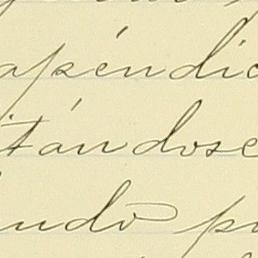 apéndic
tándose
ando po